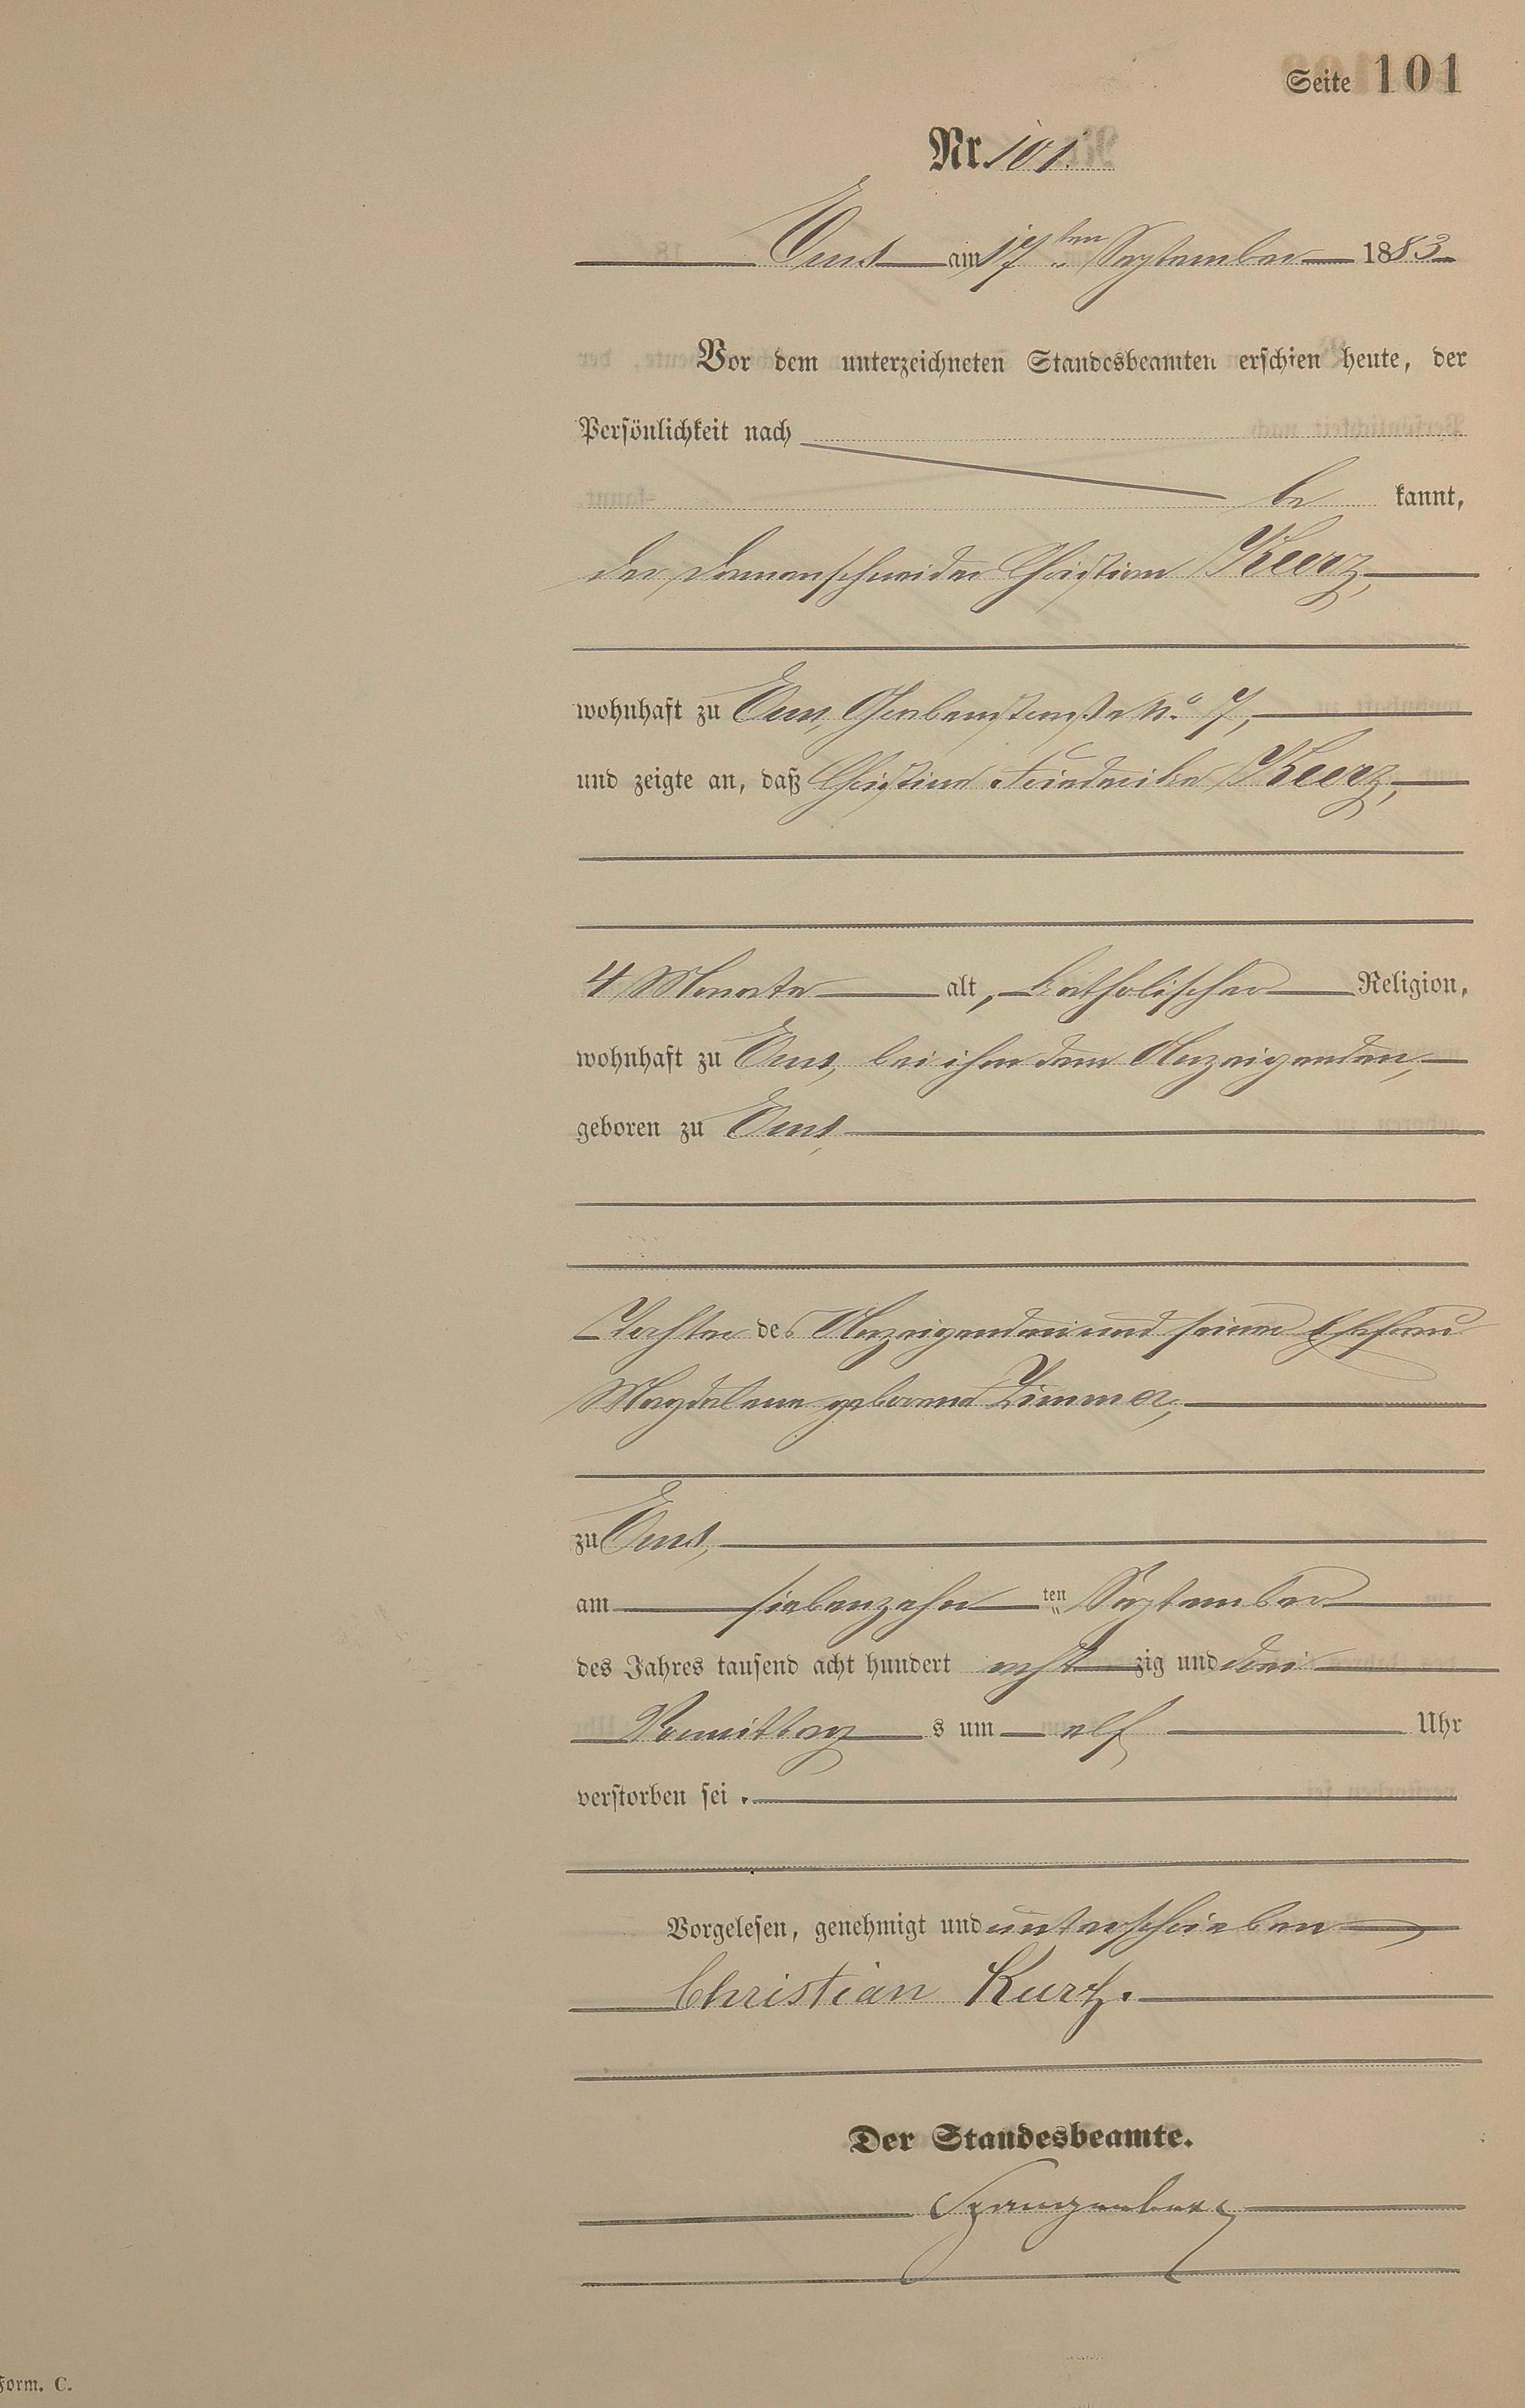 Seite 101
Nr. 101.
Ems am 17ten September 1883
Vor dem unterzeichneten Standesbeamten erschien heute, der
Persönlichkeit nach
be kannt,
der Damenschneider Christian Kurz,
wohnhaft zu Ems, Grabenstraße No 7,
und zeigte an, daß Christine Friederike Kurz,
4 Monate alt, katholischer Religion,
wohnhaft zu Ems, bei ihm dem Anzeigenden,
geboren zu Ems,
Tochter des Anzeigenden und seiner Ehefrau
Magdalena geborene Zimmer,
zu Ems,
am siebenzehn ten September
des Jahres tausend acht hundert acht zig und drei
Vormittag s um elf Uhr
verstorben sei.
Vorgelesen, genehmigt und unterschrieben
Christian Kurtz.
Der Standesbeamte.
Spangenberg
Form. C.